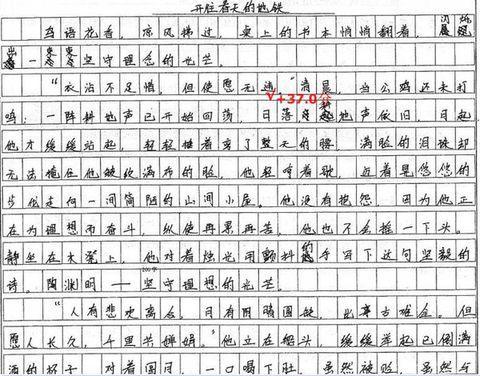 开往春天的地铁
鸟语花香，凉风拂过，桌上的书本悄悄翻着，闪烁
出一束束坚守理念的光芒
“衣沾不足惜，但使愿无违。”清晨，当公鸡还未打
√+37.0分
鸣；一阵耕地声已开始回荡，日落耕地声依旧，日起
他才缓缓站起，轻轻捶着弯了整天的腰，满脸的泪珠却
无法埋在他皱纹满布的脸，他轻哼着歌，迈着晃悠悠的
步伐走向一间简陋的山间小屋。他没有抱怨，因为他正
在为理想而奋斗，纵使再累再苦，他也不会摇一下头。
静坐在木凳上，他对着烛光用颤抖的手写下这句坚毅的
200字
诗。陶渊明——坚守理想的光芒。
“人有悲欢离合，月有阴晴圆缺，此事古难全。但
愿人长久，千里共婵娟。”他立在船头，缓缓举起已倒满
酒的杯子，对着圆月，一口喝下肚，虽然被贬，虽然与